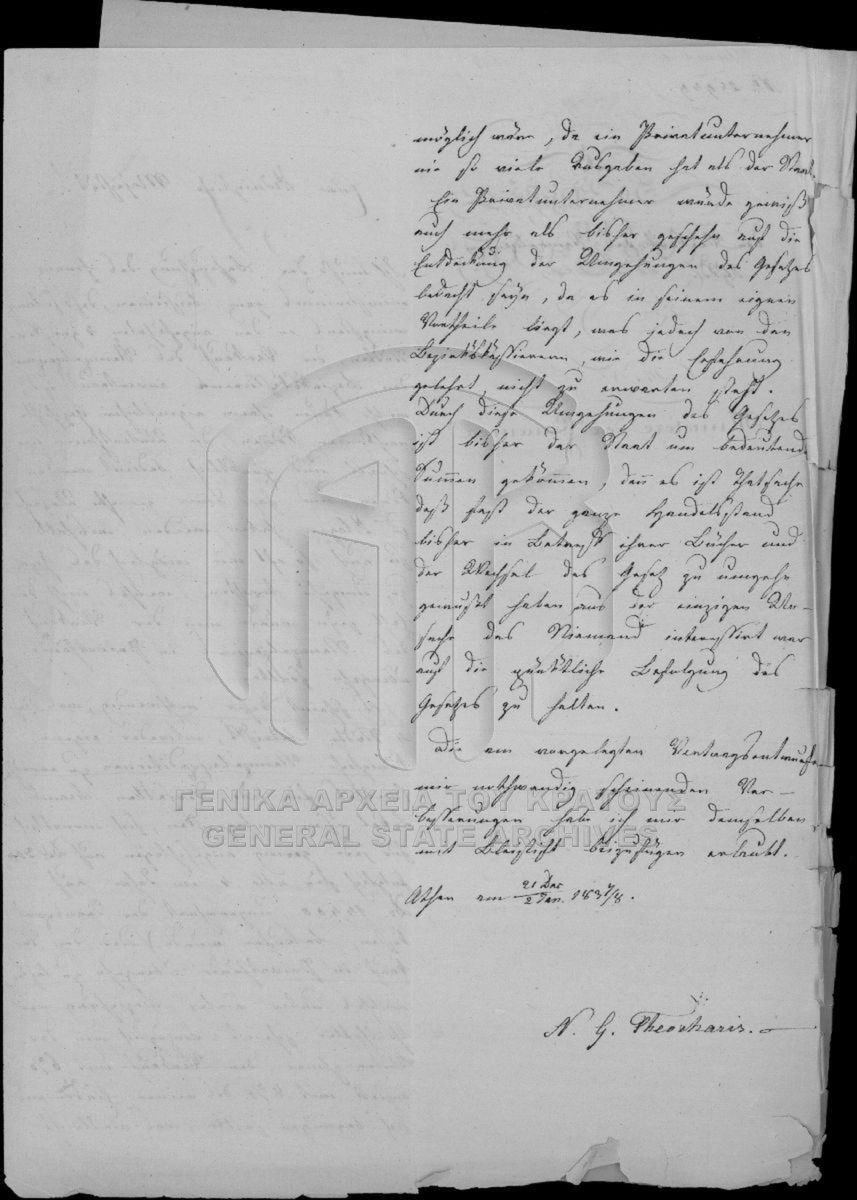 möglich wäre, da ein Privatunternehmer
nie so viele Ausgaben hat als der Staat.
Ein Privatunternehmer würde gewiß
auch mehr als bisher geschehn auf die
Entdeckung der Umgehungen des Gesetzes
bedacht seyn, da es in seinem eignen
Vortheile liegt, was jedoch von den
Bezirkskassierern, wie die Erfahrung
gelehrt, nicht zu erwarten steht.
Durch diese Umgehungen des Gesetzes
ist bisher der Staat um bedeutende
Summen gekommen, denn es ist Thatsache
daß fast der ganze Handelsstand
bisher in Betreff ihrer Bücher und
der Wechsel das Gesetz zu umgehn
gewußt haben aus der einzigen Ur-
sache das Niemand interessirt war
auf die pünktliche Befolgung des
Gesetzes zu halten.
Die am vorgelegten Vertragsentwurfe
mir nothwendig scheinenden Ver-
besserungen habe ich mir demselben
mit Bleystift beizufügen erlaubt.
Athen am 21 Dec / 2 Jan. 1837/8.
N. G. Theocharis.
ΓΕΝΙΚΑ ΑΡΧΕΙΑ ΤΟΥ ΚΡΑΤΟΥΣ
GENERAL STATE ARCHIVES